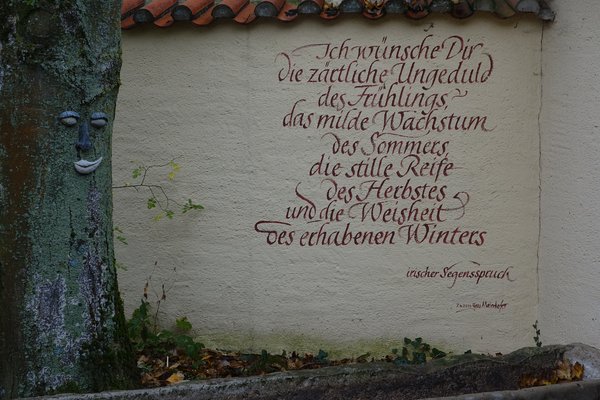 Ich wünsche Dir
die zärtliche Ungeduld
des Frühlings,
das milde Wachstum
des Sommers,
die stille Reife
des Herbstes
und die Weisheit
des erhabenen Winters
irischer Segensspruch